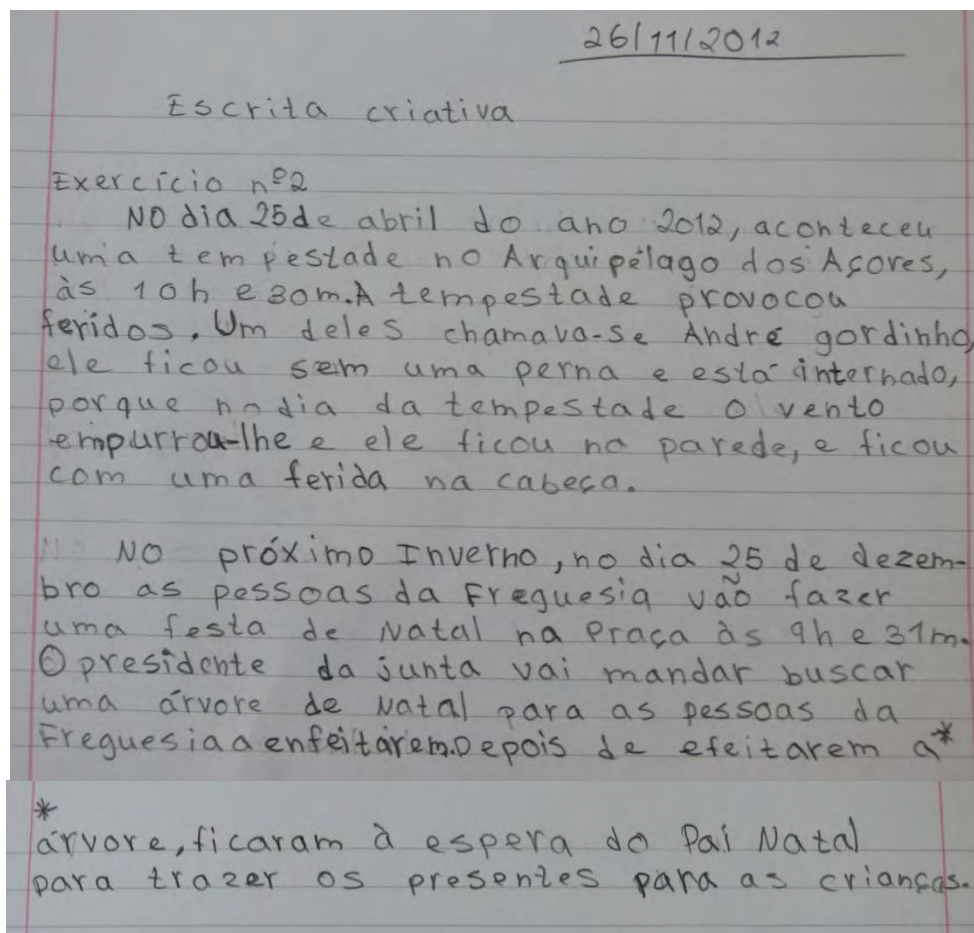 26/11/2012
Escrita criativa
Exercício nº2
No dia 25 de abril do ano 2012, aconteceu
uma tempestade no Arquipélago dos Açores,
às 10h e 30m. A tempestade provocou
feridos. Um deles chamava-se André gordinho,
ele ficou sem uma perna e está internado,
porque no dia da tempestade o vento
empurrou-lhe e ele ficou na parede, e ficou
com uma ferida na cabeça.
No próximo Inverno, no dia 25 de dezem-
bro as pessoas da Freguesia vão fazer
uma festa de Natal na Praça às 9h e 31m.
O presidente da junta vai mandar buscar
uma árvore de Natal para as pessoas da
Freguesia a enfeitárem. Depois de efeitarem a*
*
árvore, ficaram à espera do Pai Natal
para trazer os presentes para as crianças.